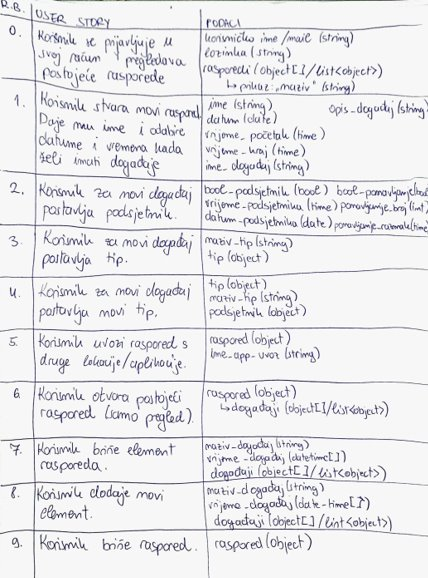 R.B. USER STORY PODACI
0. Korisnik se prijavljuje u
svoj račun i pregledava
postojeće rasporede
korisničko ime/mail (string)
lozinka (string)
rasporedi (object[]/list<object>)
↳ prikaz: "naziv" (string)
1. Korisnik stvara novi raspored.
Daje mu ime i odabire
datume i vremena kada
želi imati događaje
ime (string) opis_događaj (string)
datum (date)
vrijeme_početak (time)
vrijeme_kraj (time)
ime_događaj (string)
2. Korisnik za novi događaj
postavlja podsjetnik.
bool_podsjetnik (bool) bool_ponavljanje (bool)
vrijeme_podsjetnika (time) ponavljanje_broj (int)
datum_podsjetnika (date) ponavljanje_razmak (time)
3. Korisnik za novi događaj
postavlja tip.
naziv_tip (string)
tip (object)
4. Korisnik za novi događaj
postavlja novi tip.
tip (object)
naziv_tip (string)
podsjetnik (object)
5. Korisnik uvozi raspored s
druge lokacije/aplikacije.
raspored (object)
ime_app_uvoz (string)
6. Korisnik otvara postojeći
raspored (samo pregled).
raspored (object)
↳ događaji (object[]/list<object>)
7. Korisnik briše element
rasporeda.
naziv_događaj (string)
vrijeme_događaj (datetime[])
događaji (object[]/list<object>)
8. Korisnik dodaje novi
element.
naziv_događaj (string)
vrijeme_događaj (date-time[])
događaji (object[]/list<object>)
9. Korisnik briše raspored.
raspored (object)